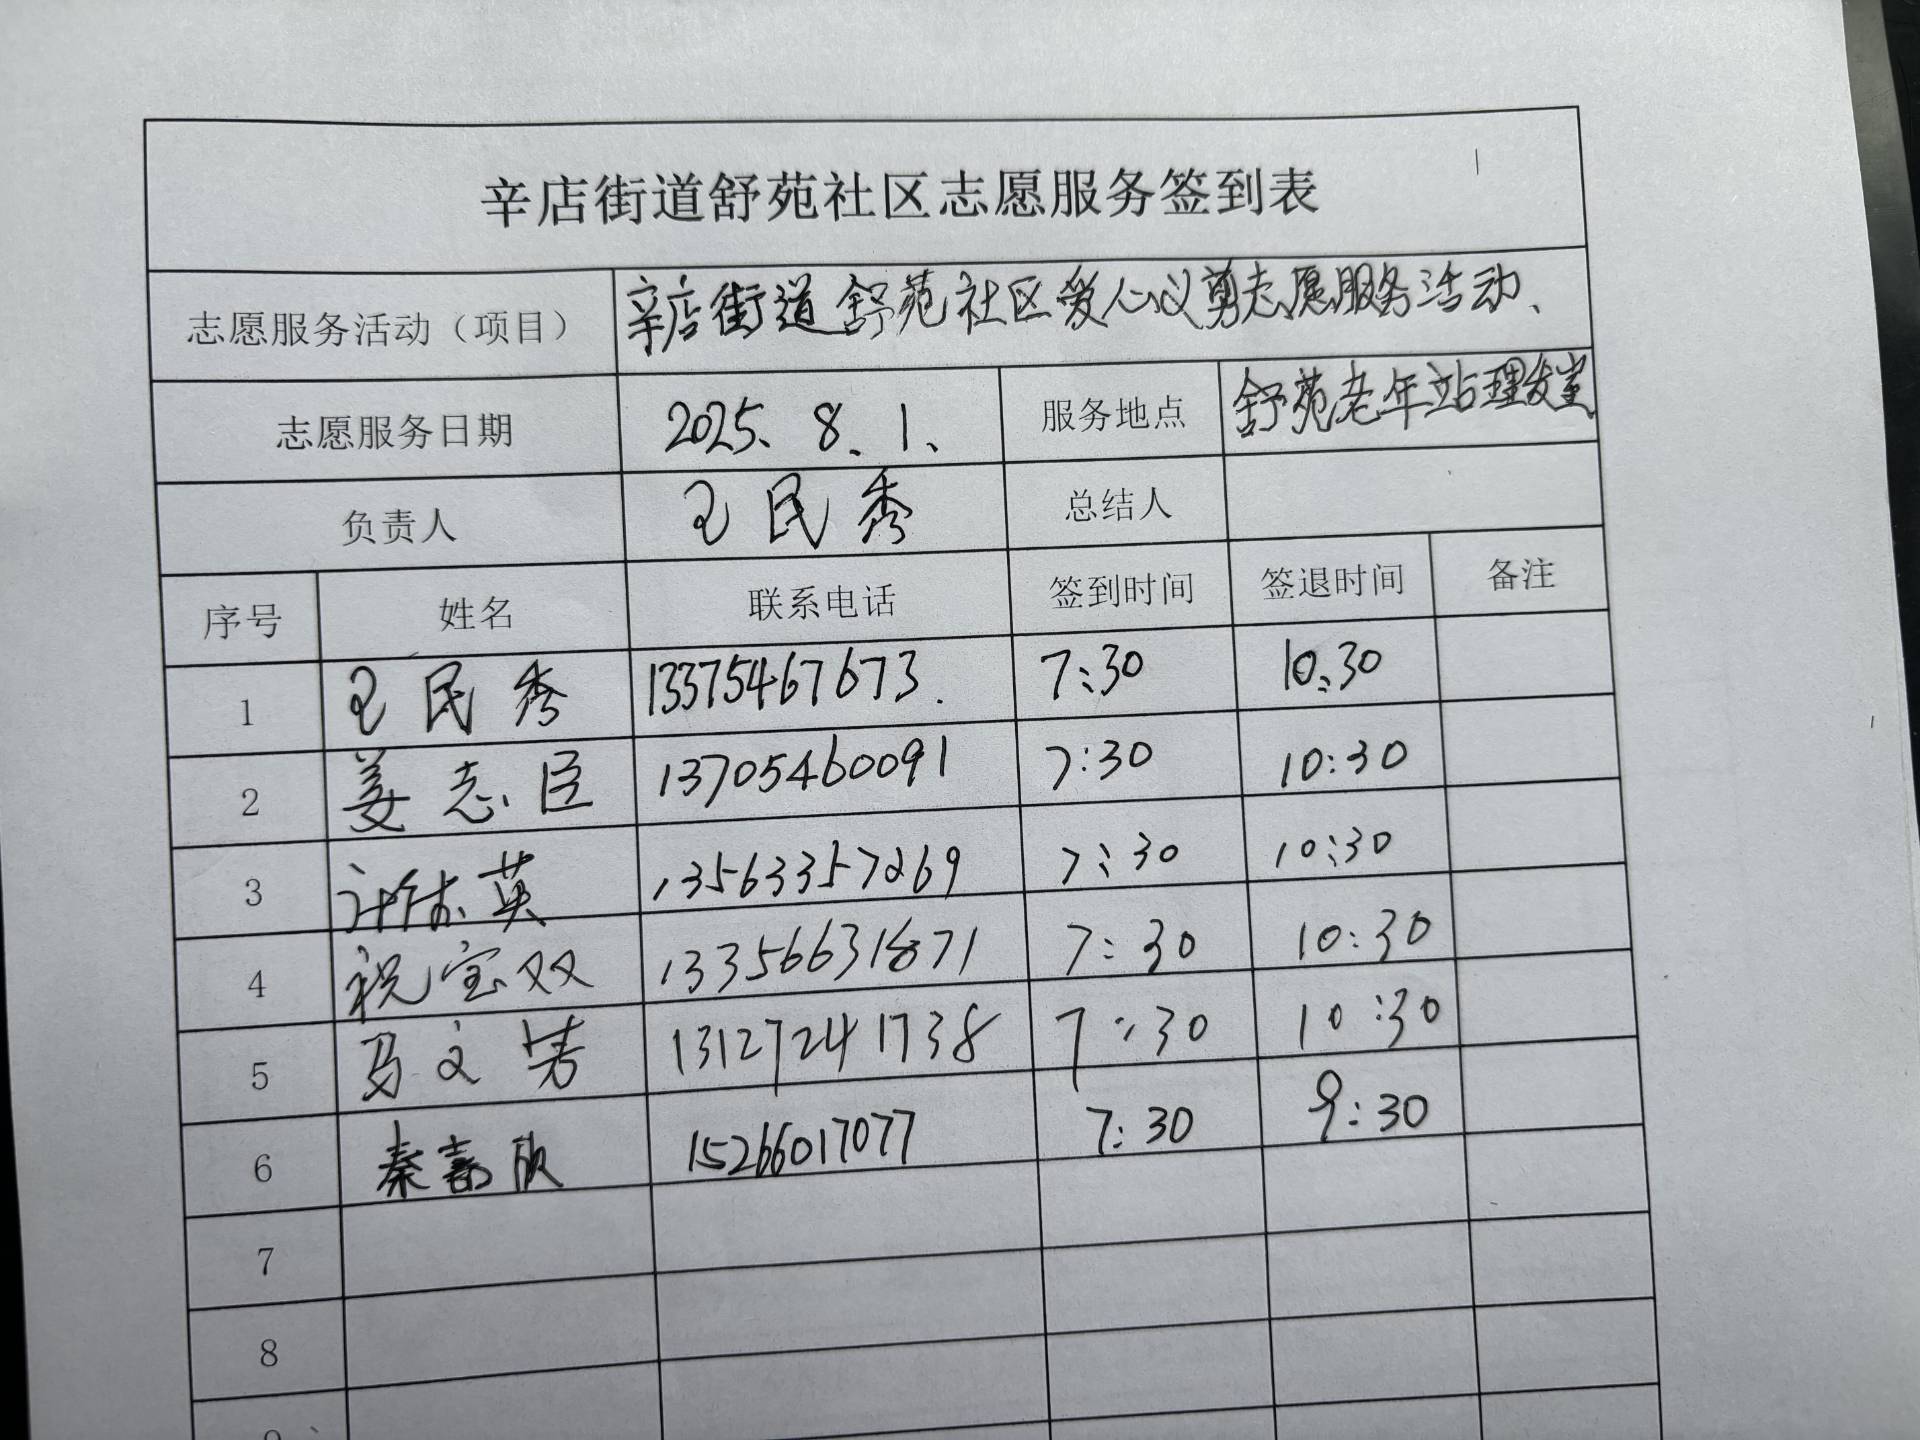 辛店街道舒苑社区志愿服务签到表
志愿服务活动（项目） 辛店街道舒苑社区爱心义剪志愿服务活动、
志愿服务日期 2025、8、1、 服务地点 舒苑老年站理发室
负责人 王民秀 总结人
序号 姓名 联系电话 签到时间 签退时间 备注
1 王民秀 13375467673. 7:30 10:30
2 姜志臣 13705460091 7:30 10:30
3 英 13563357269 7:30 10:30
4 祝宝双 13356631871 7:30 10:30
5 马文芳 13127241738 7:30 10:30
6 秦嘉欣 15266017077 7:30 9:30
7
8